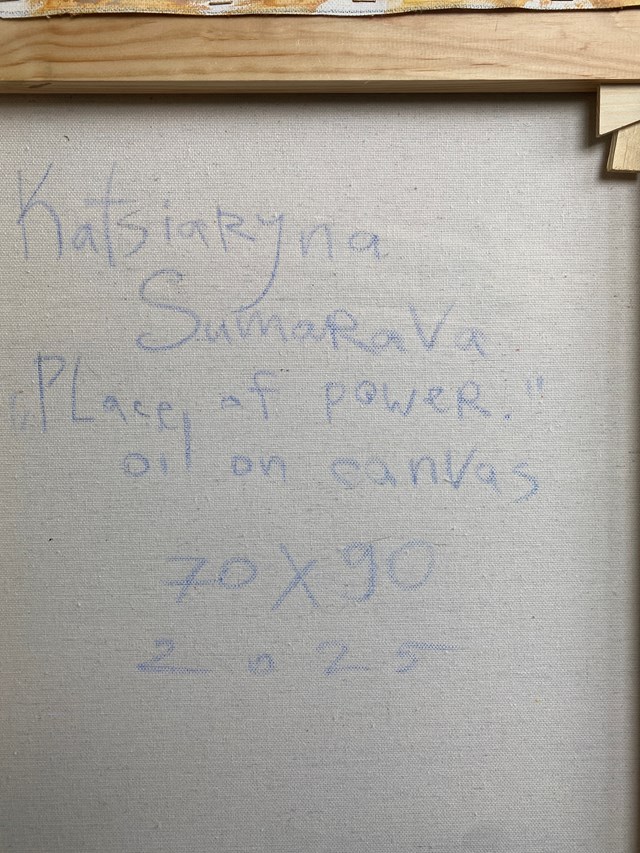 Katsiaryna
Sumarava
„Place of power."
oil on canvas
70 X 90
2025